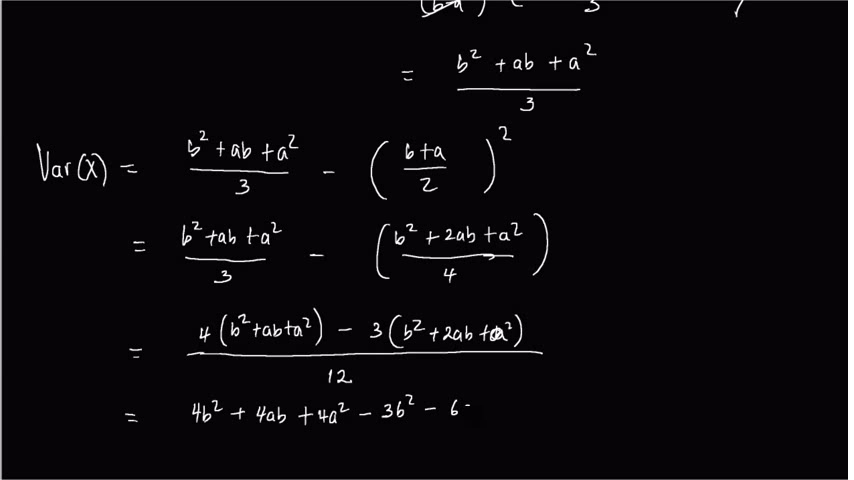 = b² + ab + a² / 3
Var(X) = b² + ab + a² / 3 - ( b + a / 2 )²
= b² + ab + a² / 3 - ( b² + 2ab + a² / 4 )
= 4 ( b² + ab + a² ) - 3 ( b² + 2ab + a² ) / 12
= 4b² + 4ab + 4a² - 3b² - 6